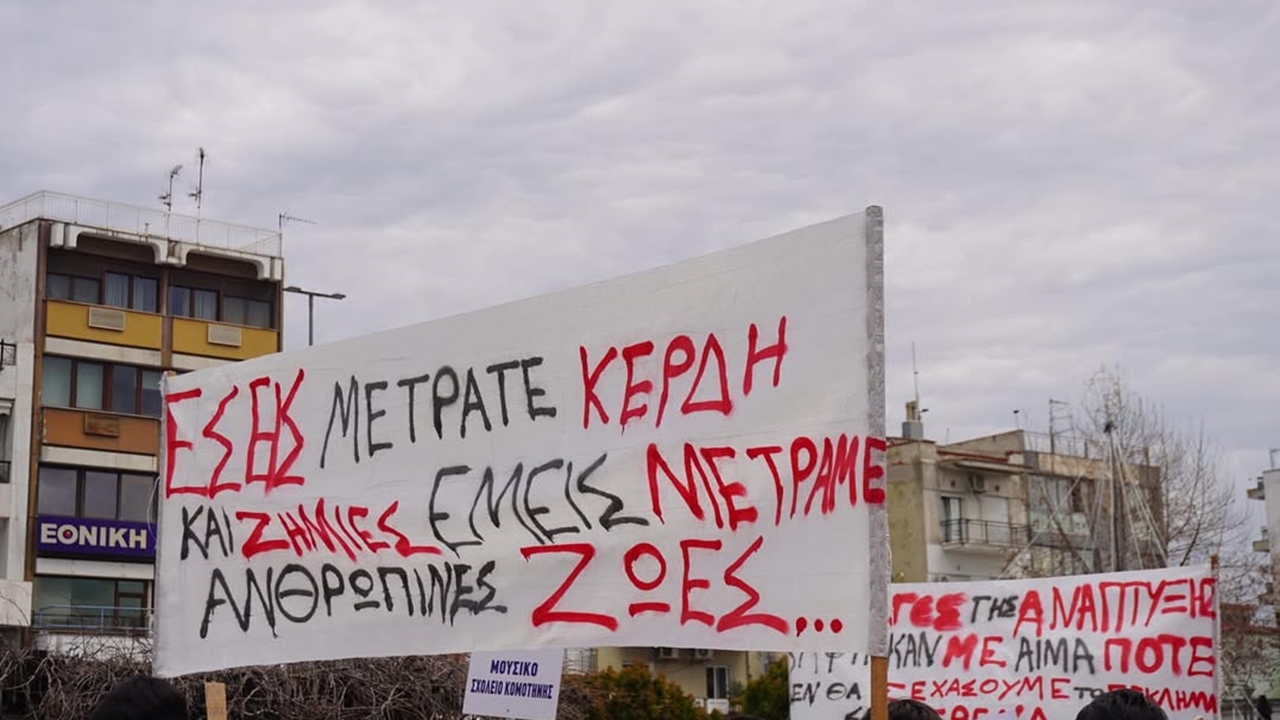 ΕΣΕΙΣ ΜΕΤΡΑΤΕ ΚΕΡΔΗ
ΚΑΙ ΖΗΜΙΕΣ ΕΜΕΙΣ ΜΕΤΡΑΜΕ
ΑΝΘΡΩΠΙΝΕΣ ΖΩΕΣ...
ΕΘΝΙΚΗ
ΜΟΥΣΙΚΟ
ΣΧΟΛΕΙΟ ΚΟΜΟΤΗΝΗΣ
ΤΗΣ ΑΝΑΠΤΥΞΗΣ
ΜΕ ΑΙΜΑ ΠΟΤΕ
ΕΝ ΘΑ ΞΕΧΑΣΟΥΜΕ ΤΟ